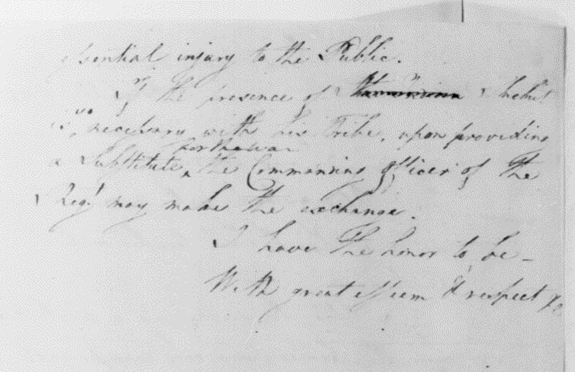 essential injury to the Public.
If the presence of
is necessary with his Tribe, upon providing
for the war
a Substitute ^ the Commanding Officer of the
Reg.t may make the exchange.
I have the honor to be—
With great esteem & respect